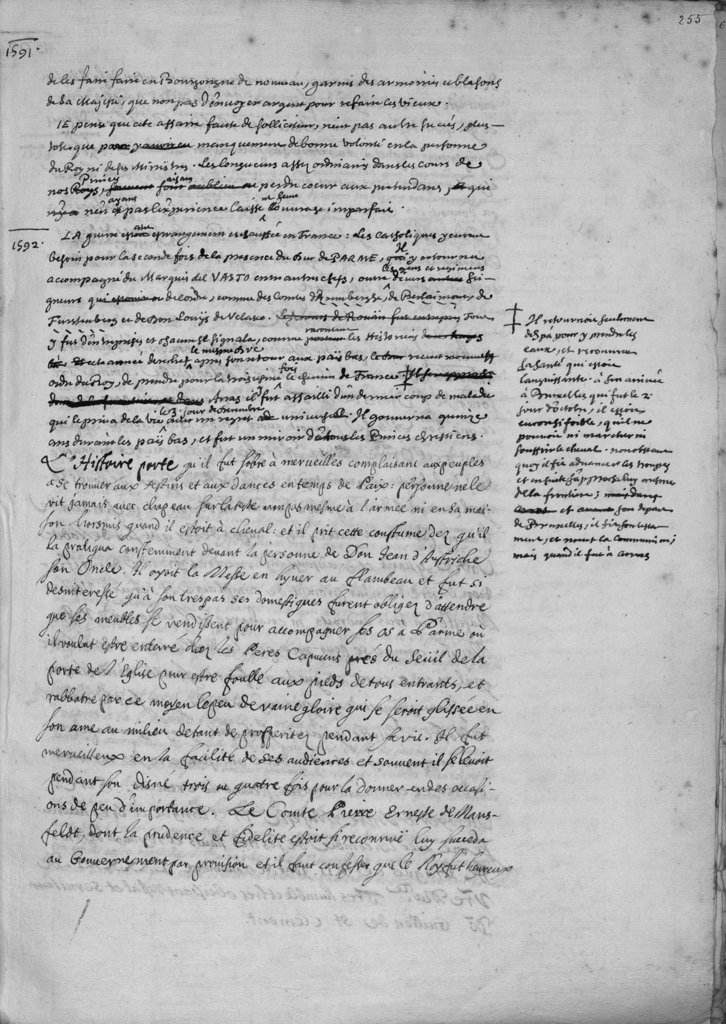 255
1591.
de les faire faire en Bourgongne de nouveau, garnis des armoiries et blasons
de Sa Majesté, que non pas d'envoyer argent pour refaire les vieux.
JE pense que cete affaire faute de solliciteur, n'eut pas autre succés, plus-
tost que manquement de bonne volonté en la personne
du Roy ni de ses Ministres. Les longueurs assez ordinaires dans les cours de
nos Princes, faisans perdre coeur aux pretendans, qui
n'en ayans pas l'experience laissent leur ouvrage imparfait.
1592.
LA guerre estoit estrangement eschauffée en France: les Catholiques y eurent
besoin pour la seconde fois de la presence du Duc de PARME, Il y retourna
accompagné du Marquis del VASTO entre autres chefs, outre les gens et regimens de divers Sei-
gneurs de l'ordre, comme des Comtes d'Arenberghe, de Berlaimont, de
Furstenberg et de Don Louys de Velasco.
y fut d'entreprises et chacun se signala, comme remarquent les Histoires
apres son retour aux païs bas, receut nouvel
ordre du Roy, de prendre pour la troisieme fois le chemin de France ‡
Arras il fut assailli d'un dernier coup de maladie
qui le priva de la vie le 3. jour de Decembre avec un regret universel. Il gouverna quinze
ans durant les païs bas, et fut un miroir à tous les Princes chrestiens.
L'Histoire porte qu'il fut sobre à merveilles complaisant aux peuples
à se trouver aux festins et aux dances en temps de Paix: personne ne le
vit jamais avec chapeau sur la teste non pas mesme à l'armée ni en sa mai-
son hormis quand il estoit à cheval: et il prit cette coustume dez qu'il
la pratiqua constemment devant la personne de Don Jean d'Austriche
son Oncle. Il oyoit la Messe en hyver au flambeau et fut si
desinteresse qu'à son trespas ses domestiques furent obligez d'attendre
que ses meubles se vendissent pour accompagner ses os à Parme où
il voulut estre enterré chez les Peres Capucins prés du Seuil de la
porte de l'Eglise pour estre foullé aux pieds de tous entrants, et
rabbatre par ce moyen le peu de vaine gloire qui se seroit glissée en
son ame au milieu de tant de prosperitez pendant sa vie. Il fut
merveilleux en la facilité de ses audiences et souvent il se levoit
pendant son disné trois ou quatre fois pour la donner en des occasi-
ons de peu d'importance. Le Comte Pierre Erneste de Mans-
feldt, dont la prudence et fidelité estoit si reconnuë luy succeda
au Gouvernement par provision et il faut confesser que le Roy fut heureux
‡ Il retournoit seulement
de Spa pour y prendre les
eaux, et recouvrer
la santé qui estoit
languissante: à son arrivée
à Bruxelles qui fut le 2
jour d'Octobre, il estoit
encore si foible, qu'il ne
pouvoit ni marcher ni
souffrir le cheval. nonobstant
quoy il fit advancer les troupes
et en suite s'approcha luy mesme
de la frontiere;
et avant son depart
de Bruxelles, il fit son testa-
ment, et receut la Communion;
mais quand il fut à Arras